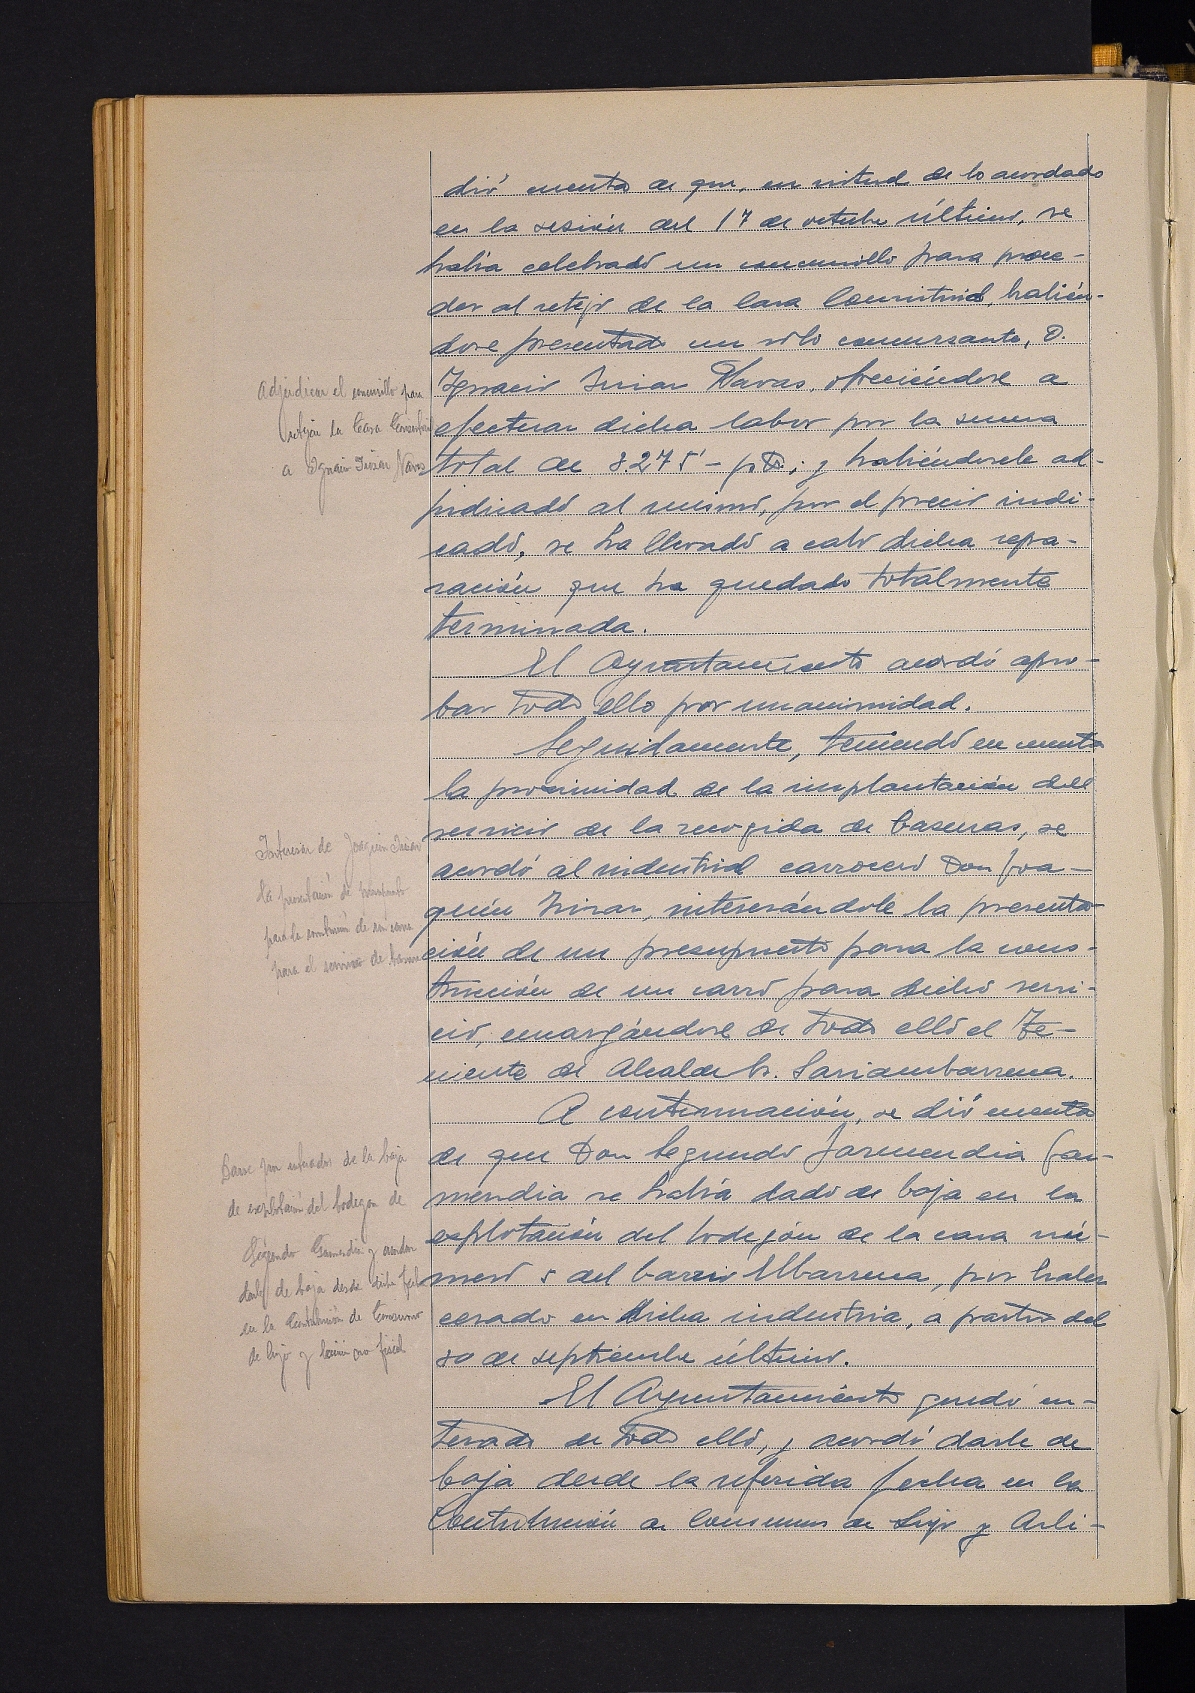 dió cuenta de que, en virtud de lo acordado
en la sesión del 17 de octubre último, se
había celebrado un concursillo para proce-
der al retejo de la Casa Consistorial, habién-
dose presentado un sólo concursante, D.
Ignacio Navas, ofreciéndose a
efectuar dicha labor por la suma
total de 3.275'- pts; y habiéndosele ad-
judicado al mismo, por el precio indi-
cado, se ha llevado a cabo dicha repa-
ración que ha quedado totalmente
terminada.
El Ayuntamiento acordó apro-
bar todo ello por unanimidad.
Seguidamente, teniendo en cuenta
la proximidad de la implantación del
servicio de la recogida de basuras, se
acordó al industrial carrocero Don Joa-
quín interesándole la presenta
ción de un presupuesto para la cons-
trucción de un carro para dicho servi-
cio, encargándose de todo ello el Te-
niente de Alcalde Sr. Lariambarrena.
A continuación, se dió cuenta
de que Don Segundo Garmendia Gar-
mendia se había dado de baja en la
explotación del bodegón de la casa nú-
mero 5 del barrio Elbarrena, por haber
cesado en dicha industria, a partir del
30 de septiembre último.
El Ayuntamiento quedó en-
terado de todo ello, y acordó darle de
baja desde la referida fecha en la
Contribución de Consumos de Lujo y Arbi-
Adjudicar el concursillo para
retejar la Casa Consistorial
a Ignacio Navas
Interesar de Joaquin
la presentación de
para la construcción de un carro
para el servicio de basuras
Darse por enterados de la baja
de explotación del bodegon de
Segundo Garmendia y acordar
darle de baja desde dicha fecha
en la Contribución de Consumos
de lujo y fiscal